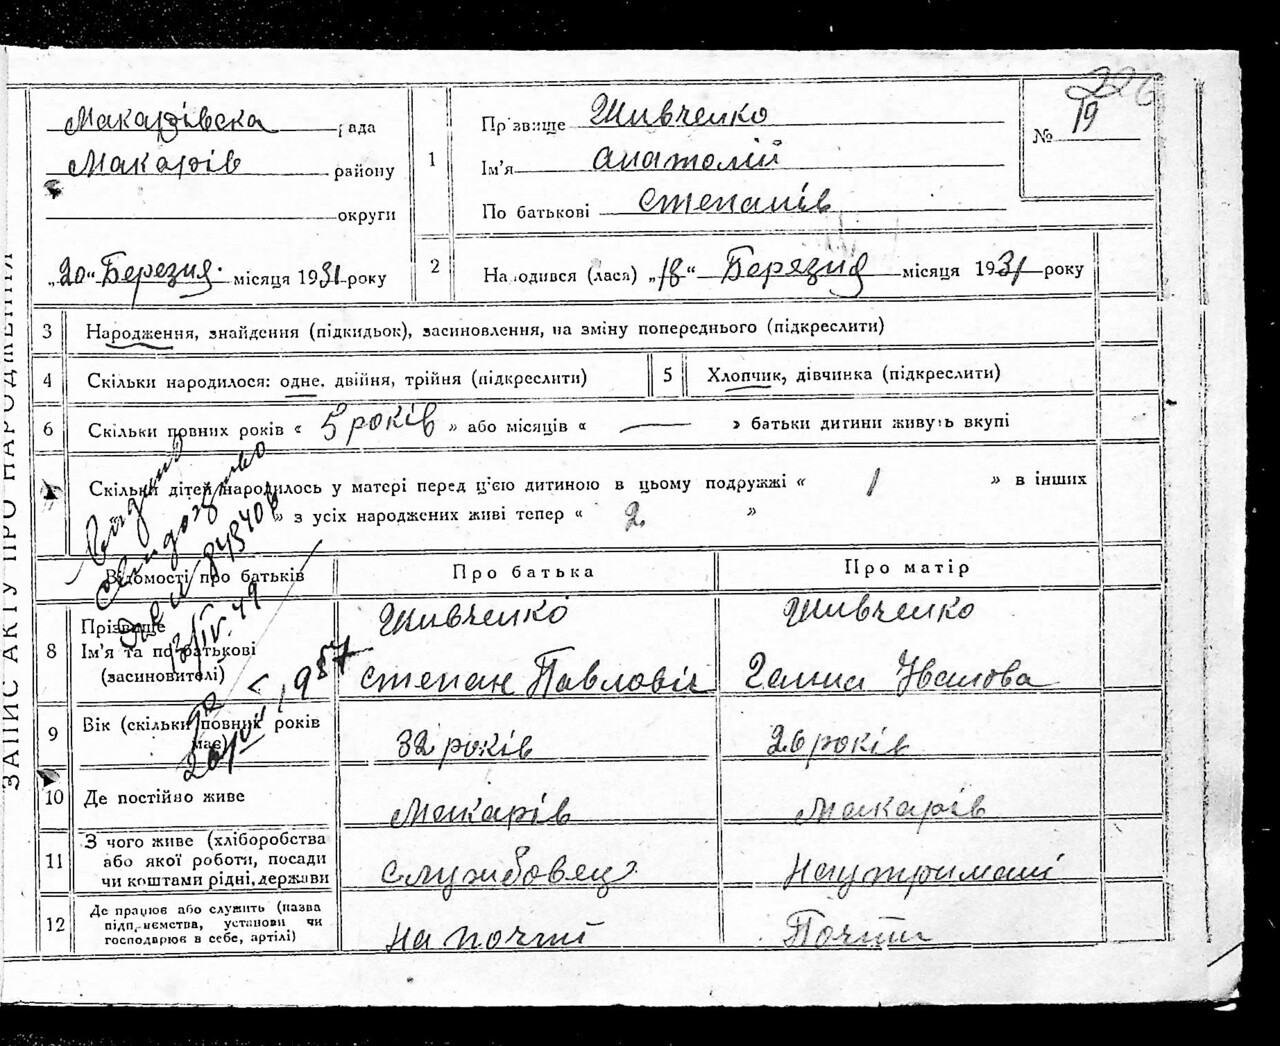 226
Макарівска рада
Макарів району
округи
„20“ Березня місяця 1931 року
1
Прізвище Шивченко
Ім'я Анатолій
По батькові Степанів
№ 19
2
На одився (лася) „18“ Берязня місяця 1931 року
ЗАПИС АКТУ ПРО НАРОДЖЕННЯ
3 Народження, знайдення (підкидьок), засиновлення, на зміну попереднього (підкреслити)
4 Скільки народилося: одне, двійня, трійня (підкреслити)
5 Хлопчик, дівчинка (підкреслити)
6 Скільки повних років « 5 років » або місяців « — » батьки дитини живуть вкупі
Скільки дітей народилось у матері перед ц'єю дитиною в цьому подружжі « 1 » в інших
» з усіх народжених живі тепер « 2 »
13/IV.49
1957
Відомості про батьків
Про батька
Про матір
8 Прізвище
Ім'я та по батькові
(засиновителі)
Шивченко
Степан Павловіч
Шивченко
Ганна Івалова
9 Вік (скільки повних років
має)
32 років
26 років
10 Де постійно живе
Макарів
Макарів
11 З чого живе (хліборобства
або якої роботи, посади
чи коштами рідні, держави
Службовец
На утримані
12 Де працює або служить (назва
підприємства, установи чи
господарює в себе, артілі)
На почті
Почти